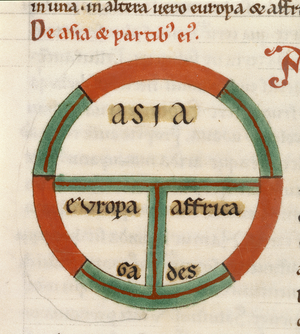 in una · in altera uero europa & affri
De asia & partib⁹ ei⁹.
ASIA
eVropa affrica
Ga des